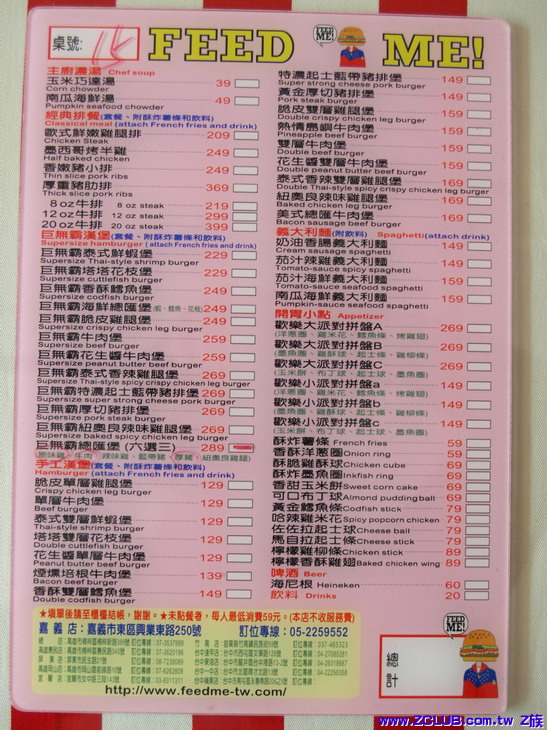 桌號: 15
FEED ME!
FEED ME!
主廚濃湯 Chef soup
玉米巧達湯 39
Corn chowder
南瓜海鮮湯 49
Pumpkin seafood chowder
經典排餐(套餐、附酥炸薯條和飲料)
Classical meal (attach French fries and drink)
歐式鮮嫩雞腿排 209
Chicken Steak
墨西哥烤半雞 249
Half baked chicken
香嫩豬小排 249
Thin slice pork ribs
厚重豬肋排 369
Thick slice pork ribs
8 oz牛排 8 oz steak 219
12 oz牛排 12 oz steak 299
20 oz牛排 20 oz steak 399
巨無霸漢堡(套餐、附酥炸薯條和飲料)
Supersize hamburger (attach French fries and drink)
巨無霸泰式鮮蝦堡 229
Supersize Thai-style shrimp burger
巨無霸塔塔花枝堡 229
Supersize cuttlefish burger
巨無霸香酥鱈魚堡 249
Supersize codfish burger
巨無霸海鮮總匯堡(蝦、鱈魚、花枝) 249
巨無霸脆皮雞腿堡 249
Supersize crispy chicken leg burger
巨無霸牛肉堡 259
Supersize beef burger
巨無霸花生醬牛肉堡 259
Supersize peanut butter beef burger
巨無霸泰式香辣雞腿堡 269
Supersize Thai-style spicy crispy chicken leg burger
巨無霸特濃起士藍帶豬排堡 269
Supersize super strong cheese pork burger
巨無霸厚切豬排堡 269
Supersize pork steak burger
巨無霸紐奧良辣味雞腿堡 269
Supersize baked spicy chicken leg burger
巨無霸總匯堡(六選三) 289
手工漢堡(套餐、附酥炸薯條和飲料)
Hamburger (attach French fries and drink)
脆皮單層雞腿堡 129
Crispy chicken leg burger
單層牛肉堡 129
Beef burger
泰式雙層鮮蝦堡 129
Thai-style shrimp burger
塔塔雙層花枝堡 129
Double cuttlefish burger
花生醬單層牛肉堡 129
Peanut butter beef burger
煙燻培根牛肉堡 139
Bacon beef burger
香酥雙層鱈魚堡 149
Double codfish burger
特濃起士藍帶豬排堡 149
Super strong cheese pork burger
黃金厚切豬排堡 149
Pork steak burger
脆皮雙層雞腿堡 159
Double crispy chicken leg burger
熱情島嶼牛肉堡 159
Pineapple beef burger
雙層牛肉堡 159
Double beef burger
花生醬雙層牛肉堡 159
Double peanut butter beef burger
泰式香辣雙層雞腿堡 169
Double Thai-style spicy crispy chicken leg burger
紐奧良辣味雞腿堡 169
Baked spicy chicken leg burger
美式總匯牛肉堡 169
Bacon sausage beef burger
義大利麵(附飲料) Spaghetti(attach drink)
奶油香腸義大利麵 149
Cream sausage spaghetti
茄汁辣雞義大利麵 149
Tomato-sauce spicy spaghetti
茄汁海鮮義大利麵 159
Tomato-sauce seafood spaghetti
南瓜海鮮義大利麵 159
Pumpkin-sauce seafood spaghetti
開胃小點 Appetizer
歡樂大派對拼盤A 269
(洋蔥圈、雞米花、鱈魚條、烤雞翅)
歡樂大派對拼盤B 269
(墨魚圈、雞酥球、起士條、雞柳條)
歡樂大派對拼盤C 269
(玉米餅、布丁球、起士球、墨魚圈)
歡樂小派對拼盤a 149
(洋蔥圈、雞米花、鱈魚條、烤雞翅)
歡樂小派對拼盤b 149
(墨魚圈、雞酥球、起士條、雞柳條)
歡樂小派對拼盤c 149
(玉米餅、布丁球、起士球、墨魚圈)
酥炸薯條 French fries 59
香酥洋蔥圈 Onion ring 59
酥脆雞酥球 Chicken cube 69
酥炸墨魚圈 Inkfish ring 69
香甜玉米餅 Sweet corn cake 69
可口布丁球 Almond pudding ball 69
黃金鱈魚條 Codfish stick 79
哈辣雞米花 Spicy popcorn chicken 79
佐佐拉起士球 Cheese ball 79
馬自拉起士條 Cheese stick 79
檸檬雞柳條 Chicken stick 89
檸檬香酥雞翅 Baked chicken wing 89
啤酒 Beer
海尼根 Heineken 60
飲料 Drinks 20
★填單後請至櫃檯結帳，謝謝。★未點餐者，每人最低消費59元。(本店不收服務費)
嘉義店：嘉義市東區興業東路250號 訂位專線：05-2259552
http://www.feedme-tw.com/
FEED ME!
總計
www.ZCLUB.com.tw Z族